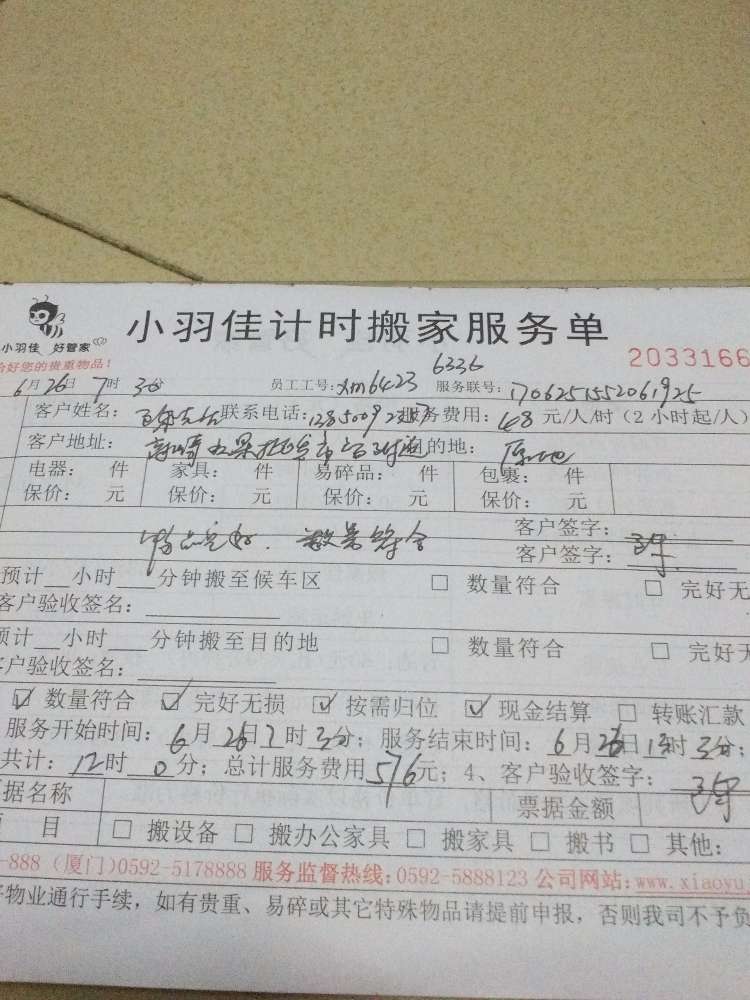 小羽佳计时搬家服务单
小羽佳 好管家
合好您的贵重物品！ 2033166
6月26日 7时 30分 员工工号：xm6423 6336 服务联号：1706251552061925
客户姓名： 联系电话： 服务费用：48 元/人/时（2小时起/人）
客户地址： 目的地： 原地
电器： 件 家具： 件 易碎品： 件 包裹： 件
保价： 元 保价： 元 保价： 元 保价： 元
物品完好. 数量符合 客户签字：
客户签字：
预计__小时___分钟搬至候车区 □ 数量符合 □ 完好无
客户验收签名：
预计__小时___分钟搬至目的地 □ 数量符合 □ 完好无
客户验收签名：
☑ 数量符合 ☑ 完好无损 ☑ 按需归位 ☑ 现金结算 □ 转账汇款
服务开始时间：6月26日7时30分；服务结束时间：6月26日13时30分；
共计：12时0分；总计服务费用576元；4、客户验收签字：
据名称 票据金额
项 目 □ 搬设备 □ 搬办公家具 □ 搬家具 □ 搬书 □ 其他：
-888（厦门）0592-5178888 服务监督热线：0592-5888123 公司网站：www.xiaoyu
物业通行手续，如有贵重、易碎或其它特殊物品请提前申报，否则我司不予负